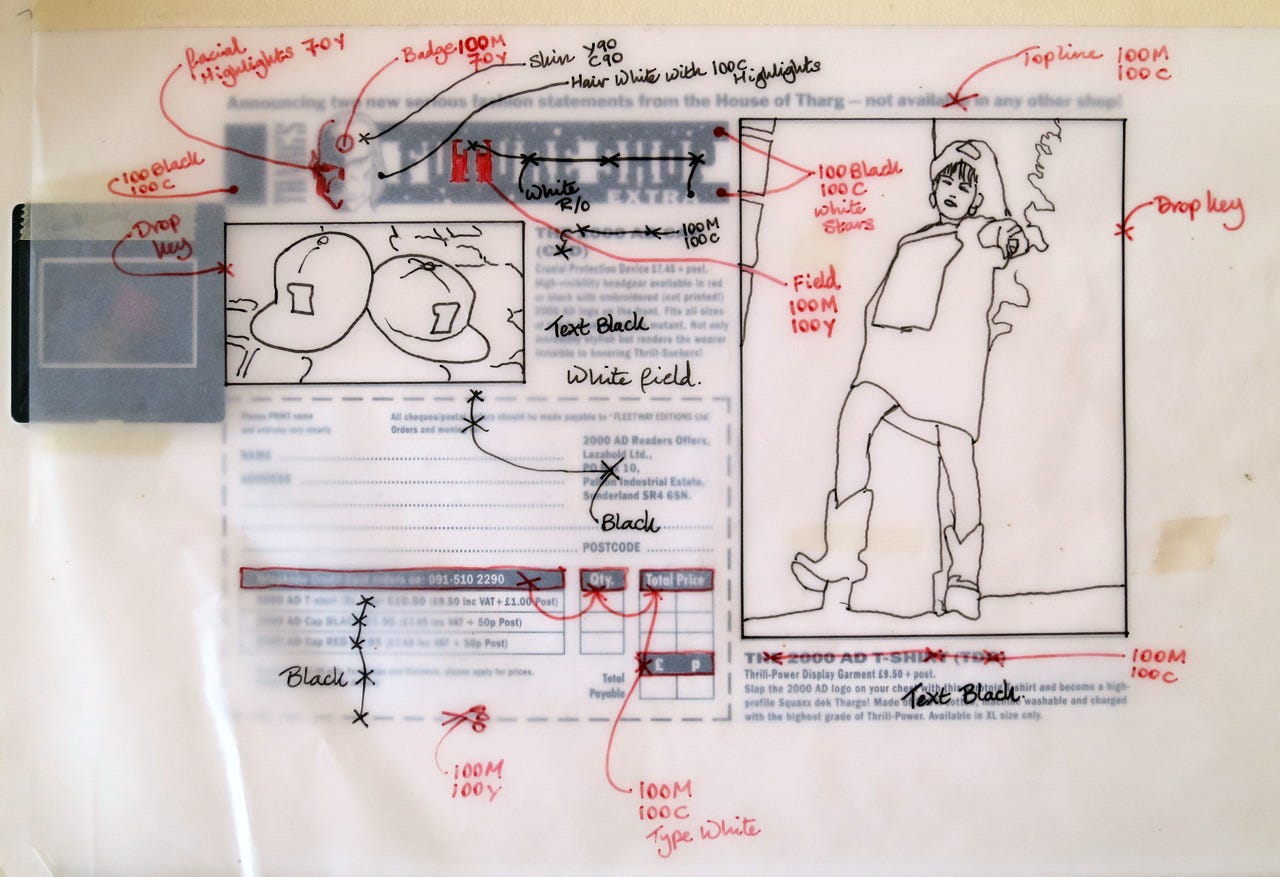 Facial
Highlights 70Y
Badge 100M
70Y
Skin Y90
C90
Hair White with 100C
Highlights
Topline 100M
100C
Announcing two new serious fashion statements from the House of Tharg – not available in any other shop!
100 Black
100C
THARG'S
FUTURE SHOP
EXTRA
White
R/O
100 Black
100C
White
Stars
Drop
Key
Drop Key
THE 2000 AD
100M
100C
Cranial Protection Device £7.45 + post.
High-visibility headgear available in red
or black with embroidered (not printed!)
2000 AD logo on the front. Fits all sizes
mutant. Not only
stylish but renders the wearer
invisible to hovering Thrill-Suckers!
Field
100M
100Y
Text Black
White field.
Please PRINT name
and address very clearly
All cheques/postal orders should be made payable to 'FLEETWAY EDITIONS Ltd'
Orders and
2000 AD Readers Offers,
Lazahold Ltd.,
PO Box 10,
Pallion Industrial Estate,
Sunderland SR4 6SN.
NAME
ADDRESS
Black
POSTCODE
orders on: 091-510 2290
Qty.
Total Price
2000 AD T-shirt (£9.50 inc VAT + £1.00 Post)
2000 AD Cap BLACK (£7.45 inc VAT + 50p Post)
2000 AD Cap RED (£7.45 inc VAT + 50p Post)
please apply for prices.
£ p
Total
Payable
Black
100M
100Y
100M
100C
Type White
THE 2000 AD T-SHIRT (TDG)
100M
100C
Thrill-Power Display Garment £9.50 + post.
Slap the 2000 AD logo on your chest with this T-shirt and become a high-
profile Squaxx dek Thargo! Made of cotton, machine washable and charged
with the highest grade of Thrill-Power. Available in XL size only.
Text Black.